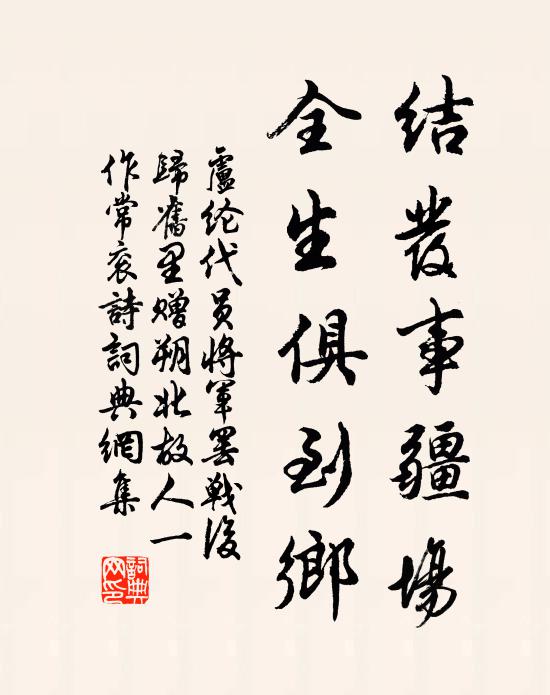 結發事疆場
全生俱到鄉
盧纶代员將軍罢戰後
歸舊里赠朔北故人一
作常衮詩詞典網集
詞典网印